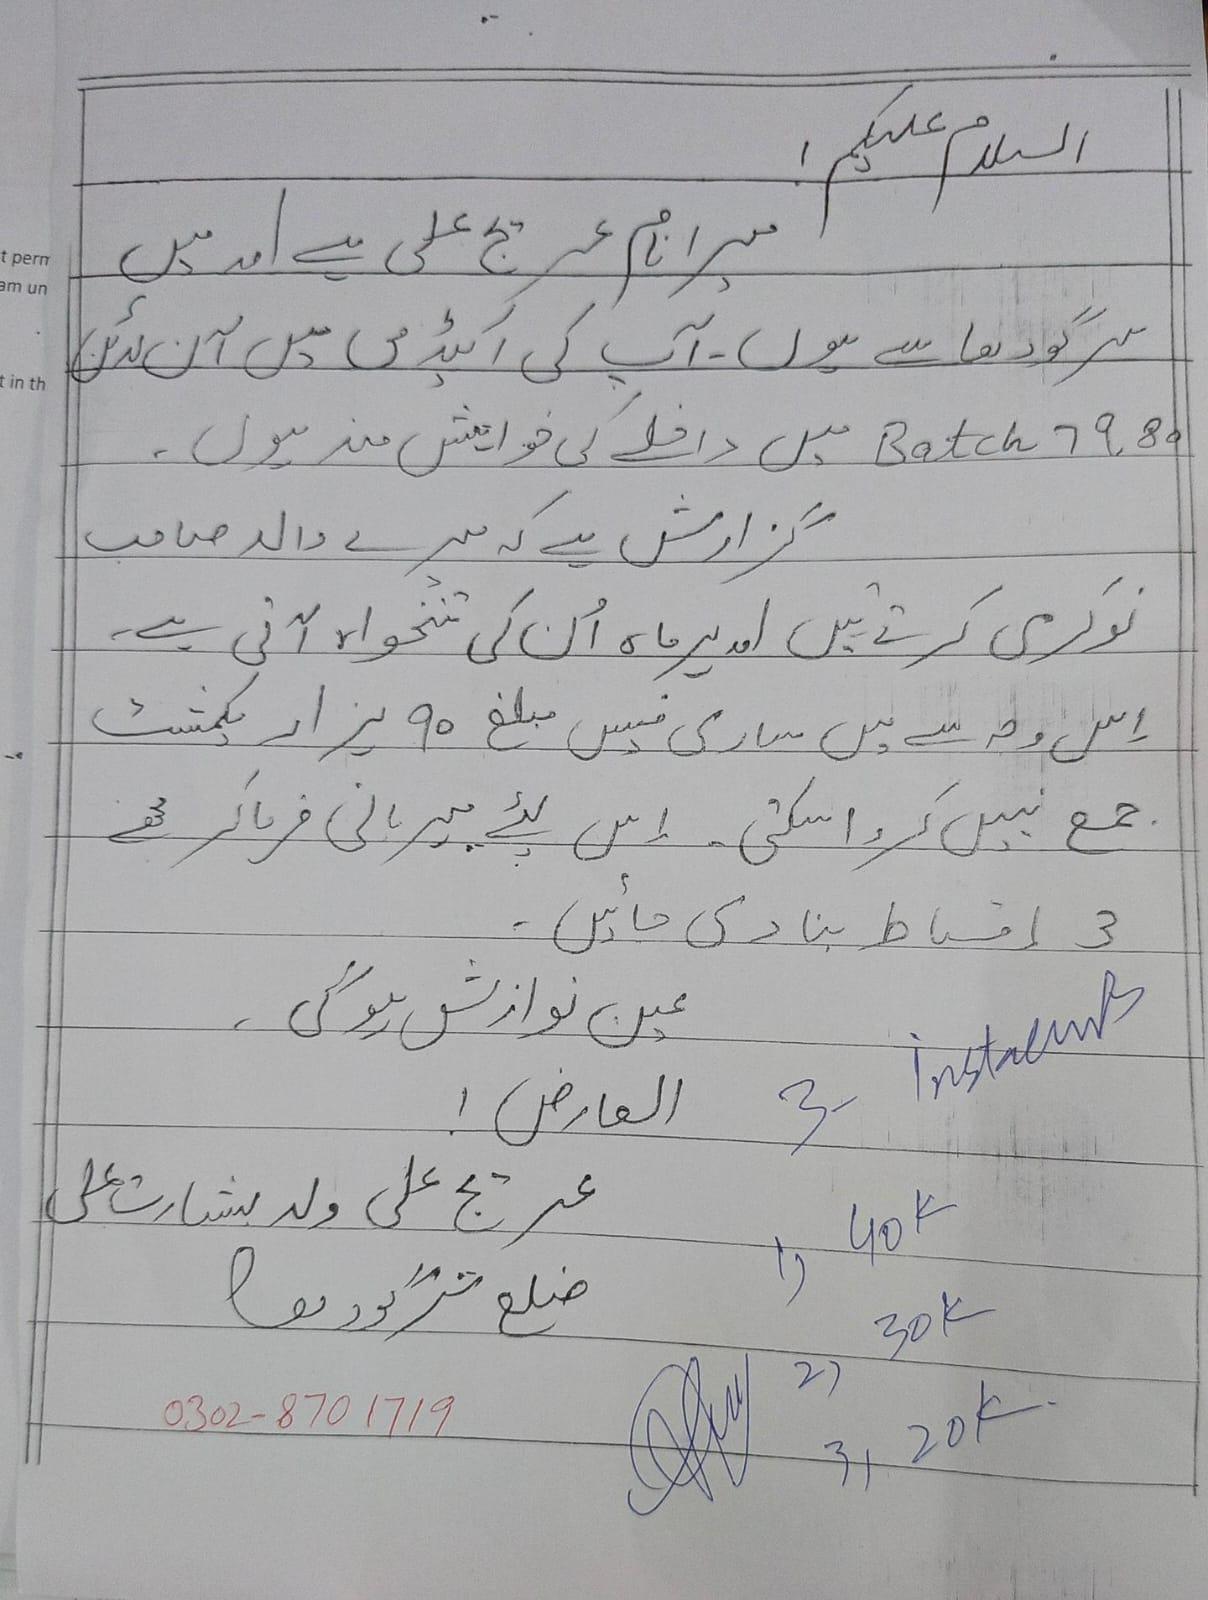 السلام علیکم !
میرا نام عریج علی ہے اور میں
سرگودھا سے ہوں ۔ آپ کی اکیڈمی میں آن لائن
Batch 79,80 میں داخلے کی خواہش مند ہوں ۔
گزارش ہے کہ میرے والد صاحب
نوکری کرتے ہیں اور ہر ماہ اُن کی تنخواہ آتی ہے۔
اِس وجہ سے میں ساری فیس مبلغ ۹۰ ہزار یکمشت
جمع نہیں کروا سکتی۔ اِس لئے مہربانی فرما کر مجھے
3 اقساط بنا دی جائیں ۔
عین نوازش ہوگی ۔
العارض !
عریج علی ولد بشارت علی
ضلع سرگودھا
0302-8701719
3- Instalments
1) 40K
2) 30K
3, 20K.
t perm
am un
t in th